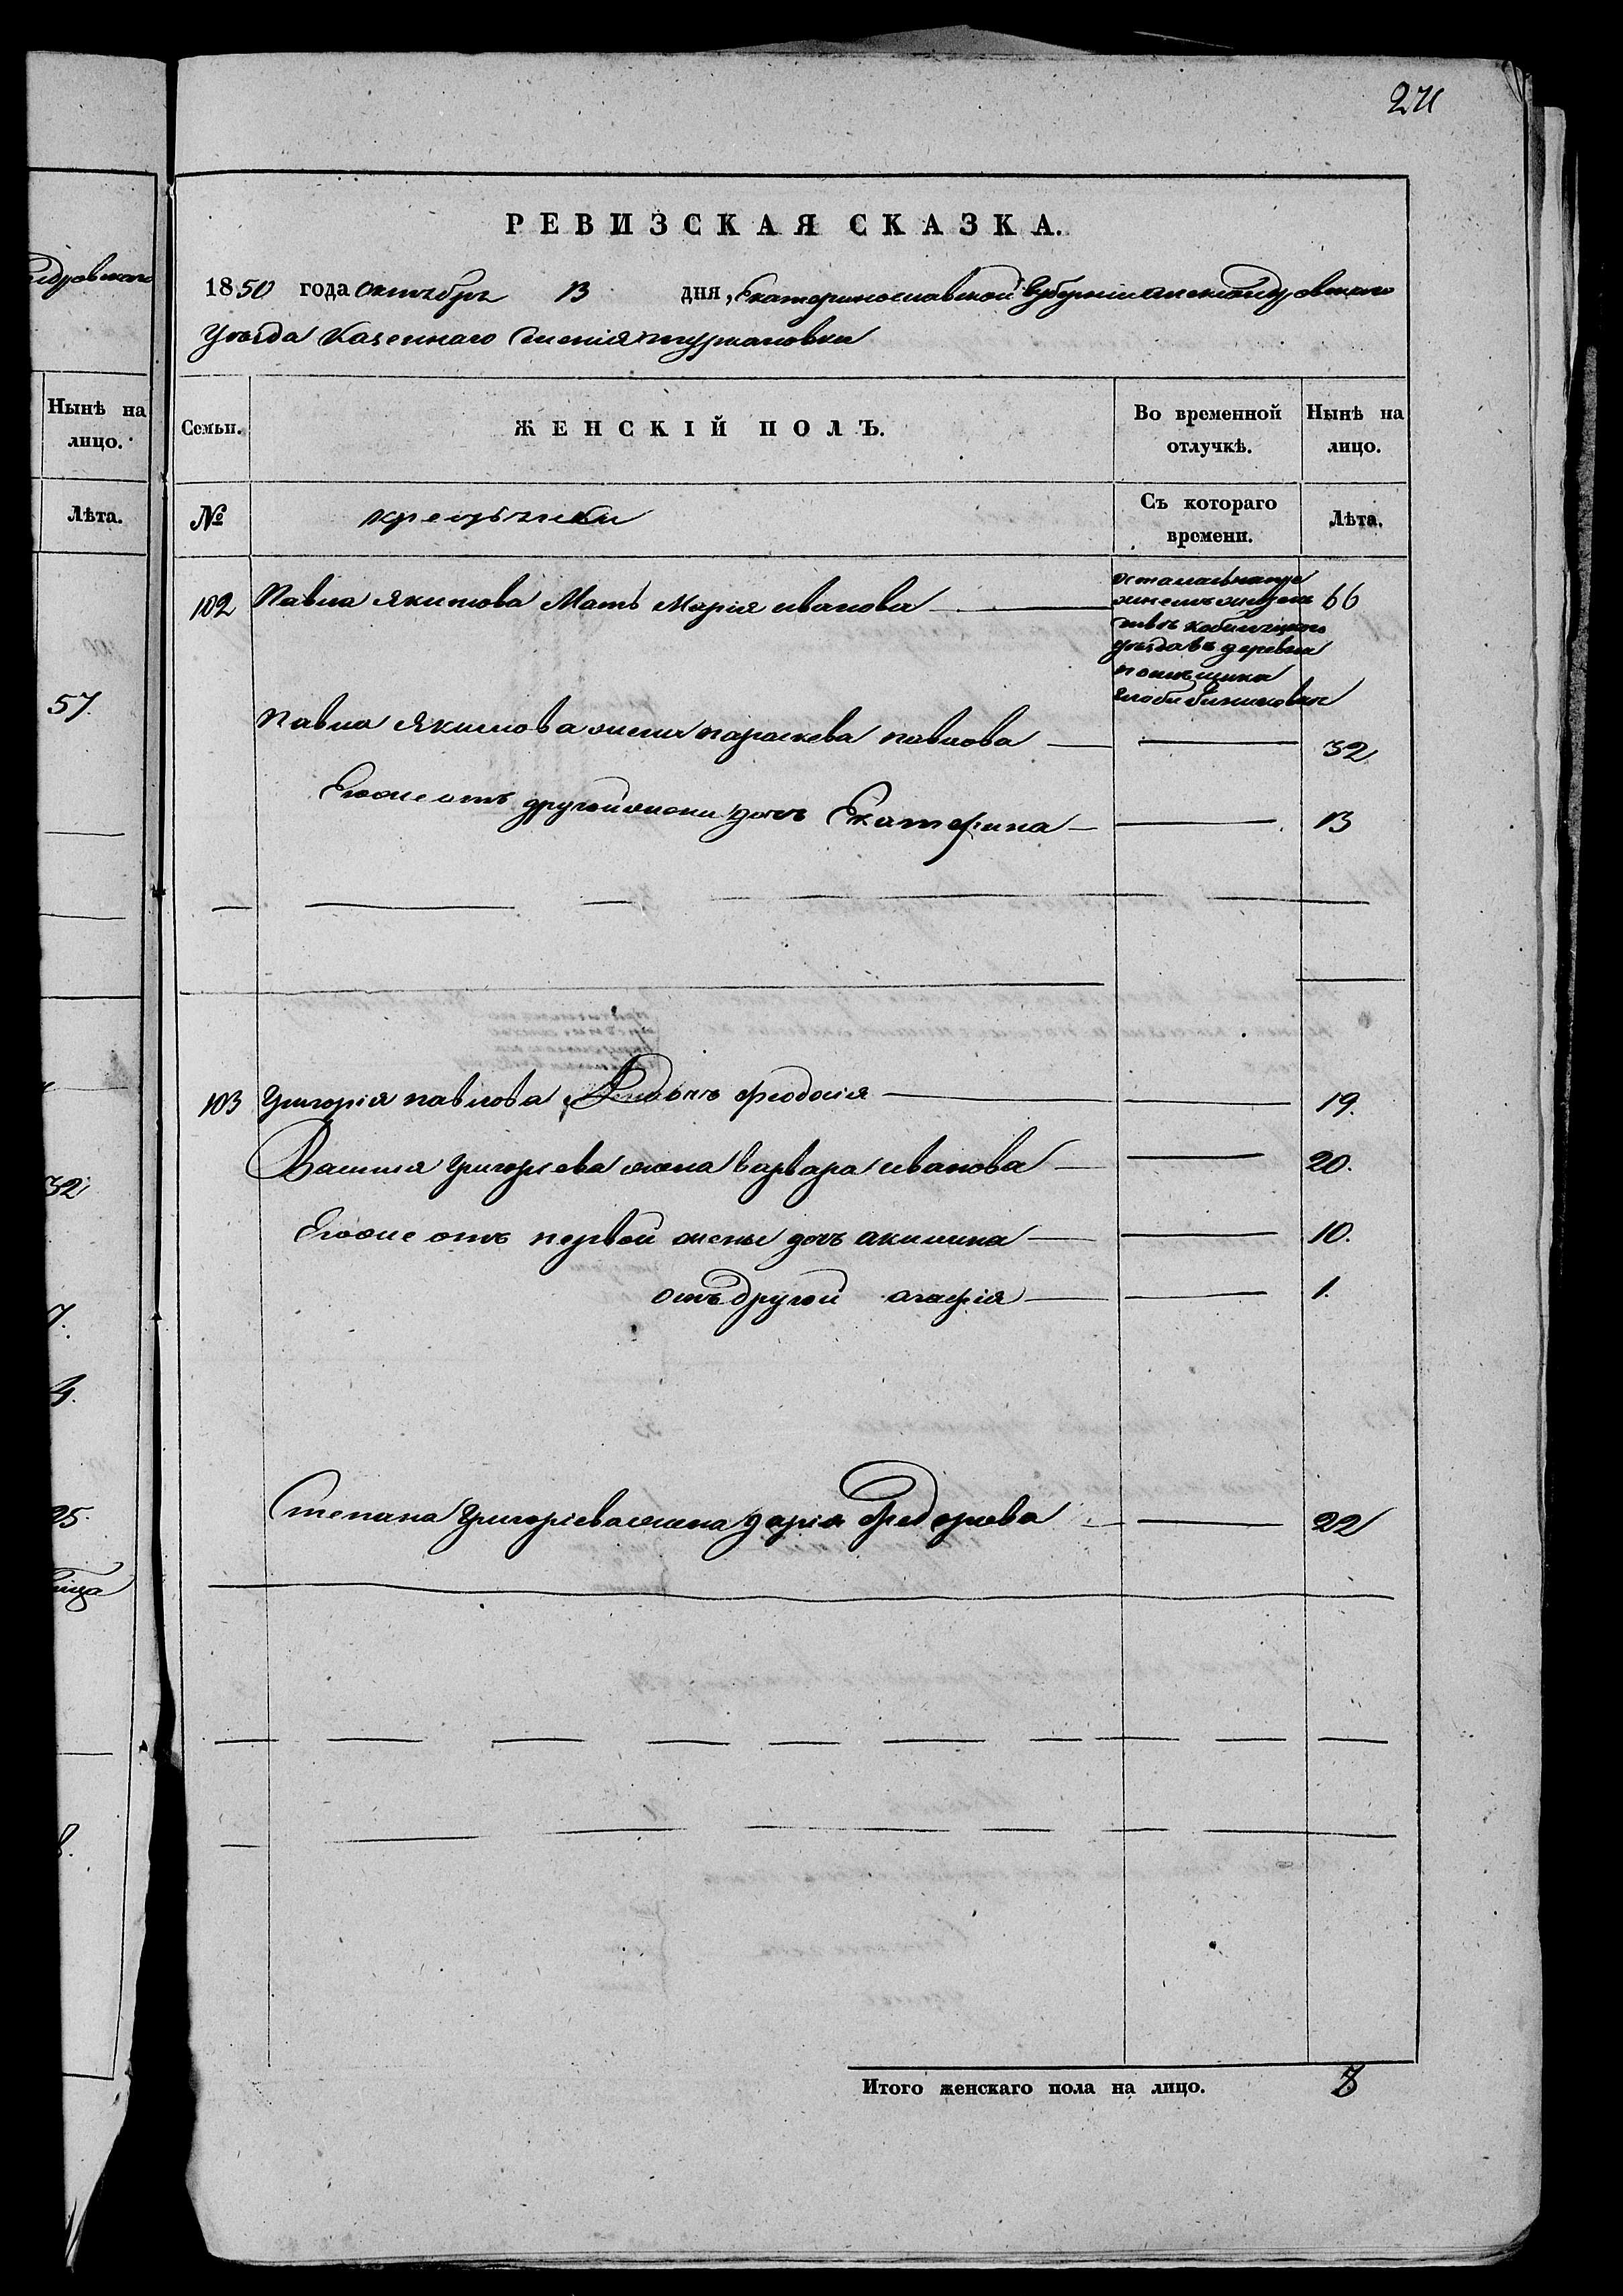 271
РЕВИЗСКАЯ СКАЗКА.
1850 года октября 13 дня, Екатеринославской Губернии Александровского
Уезда Казенного имения туркановки
Нынѣ на лицо.
Лѣта.
57.
32
7.
25.
Семьи. ЖЕНСКІЙ ПОЛЪ. Во временной отлучкѣ. Нынѣ на лицо.
№ Съ котораго времени. Лѣта.
102 Павла Якимова Мать Марія иванова 66
уезда въ деревни
помещика
Павла Якимова жена параскева павлова 32
Егоже отъ другой жены дочь Екатерина 13
103 Григорія павлова дочь феодосія 19.
Василия Григорьева жена варвара иванова 20.
Егоже отъ первой жены дочь акилина 10.
отъ другой агафія 1.
Степана Григоріева жена дарія Федорова 22
Итого женскаго пола на лицо. 8